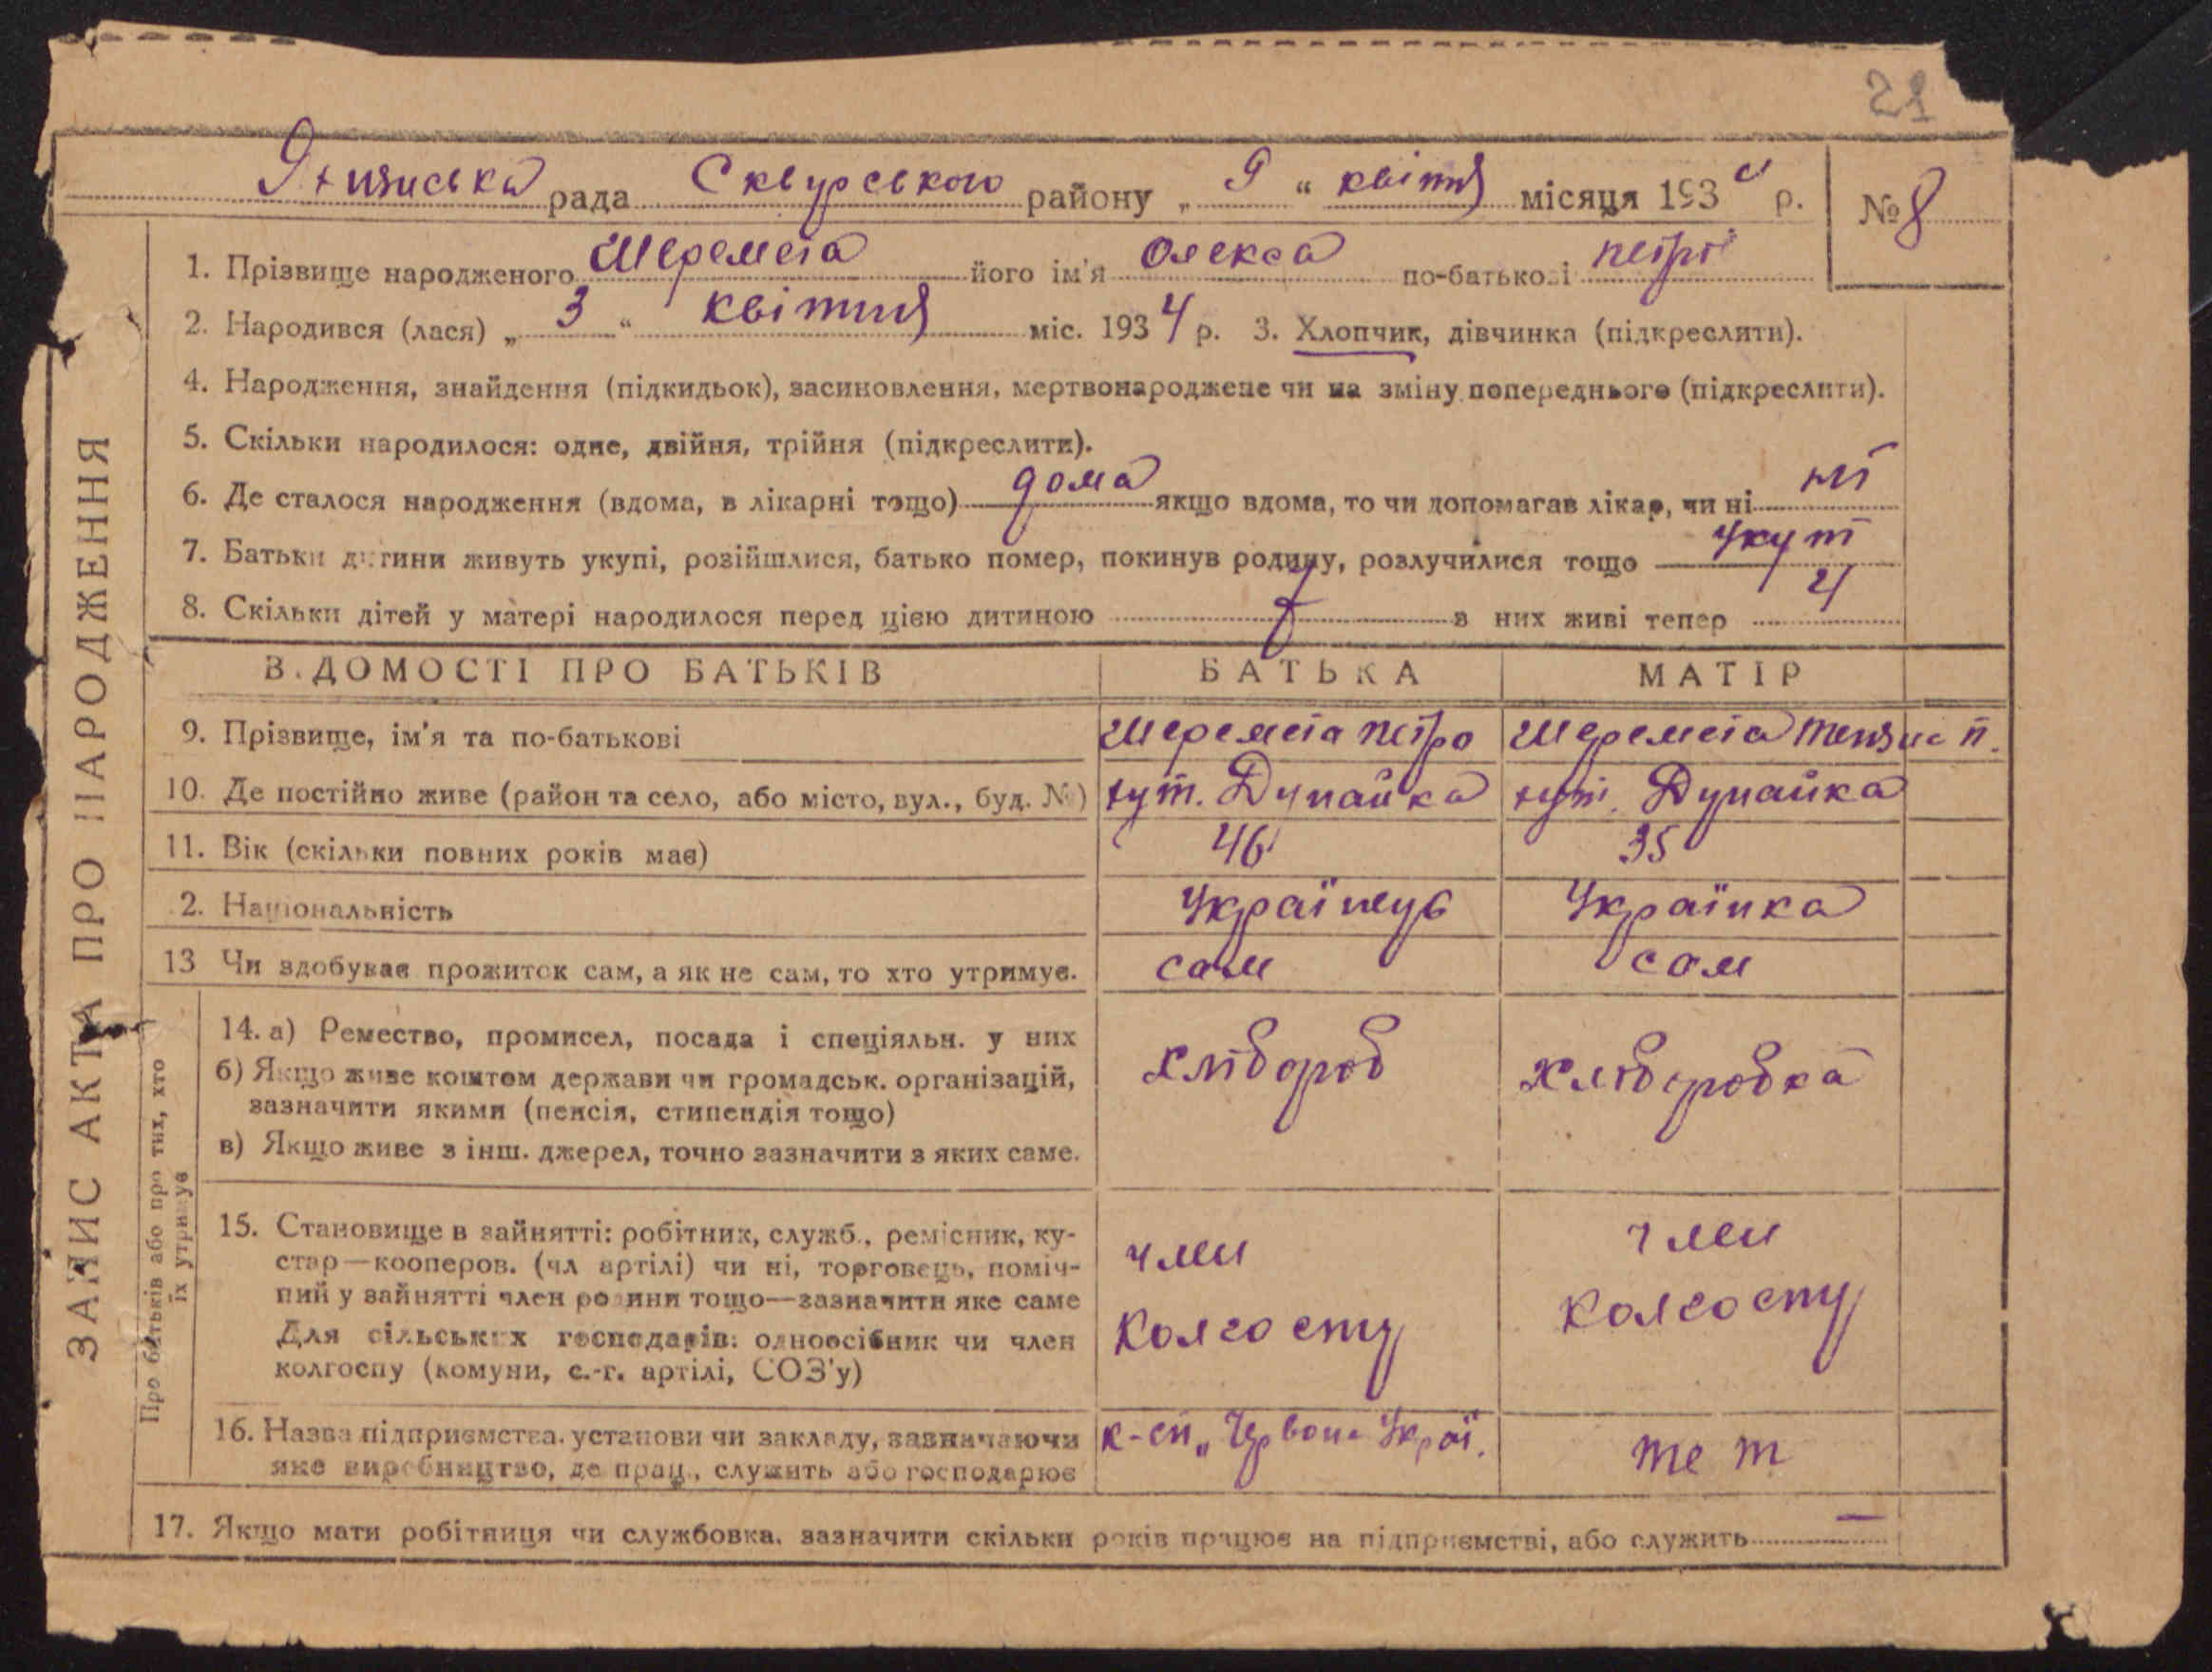 21
рада Сквурського району „ 9 “ квітня місяця 193 р. № 8
1. Прізвище народженого Шеремета його ім'я Олекса по-батькові петро
2. Народився (лася) „ 3 “ квітня міс. 1934 р. 3. Хлопчик, дівчинка (підкреслити).
4. Народження, знайдення (підкидьок), засиновлення, мертвонароджене чи на зміну попереднього (підкреслити).
5. Скільки народилося: одне, двійня, трійня (підкреслити).
6. Де сталося народження (вдома, в лікарні тощо) дома якщо вдома, то чи допомагав лікар, чи ні ні
7. Батьки дитини живуть укупі, розійшлися, батько помер, покинув родину, розлучилися тощо укупі
8. Скільки дітей у матері народилося перед цією дитиною 7 з них живі тепер 4
ВІДОМОСТІ ПРО БАТЬКІВ БАТЬКА МАТІР
9. Прізвище, ім'я та по-батькові Шеремета петро Шеремета п.
10. Де постійно живе (район та село, або місто, вул., буд. №) хут. Дунайка хут. Дунайка
11. Вік (скільки повних років має) 46 35
12. Національність Українець Українка
13 Чи здобуває прожиток сам, а як не сам, то хто утримує. сам сам
14. а) Ремество, промисел, посада і спеціяльн. у них
б) Якщо живе коштом держави чи громадськ. організацій,
зазначити якими (пенсія, стипендія тощо)
в) Якщо живе з інш. джерел, точно зазначити з яких саме.
хлібороб хлібробка
15. Становище в зайнятті: робітник, служб., ремісник, ку-
стар—кооперов. (чл артілі) чи ні, торговець, поміч-
ний у зайнятті член родини тощо—зазначити яке саме
Для сільських господарів: одноосібник чи член
колгоспу (комуни, с.-г. артілі, СОЗ'у)
член
колгоспу
член
колгоспу
16. Назва підприємства, установи чи закладу, зазначаючи
яке виробництво, де прац., служить або господарює
к-сп „Червона Украї. те ж
17. Якщо мати робітниця чи службовка, зазначити скільки років працює на підприємстві, або служить —
ЗАПИС АКТА ПРО НАРОДЖЕННЯ
Про батьків або про тих, хто
їх утримує